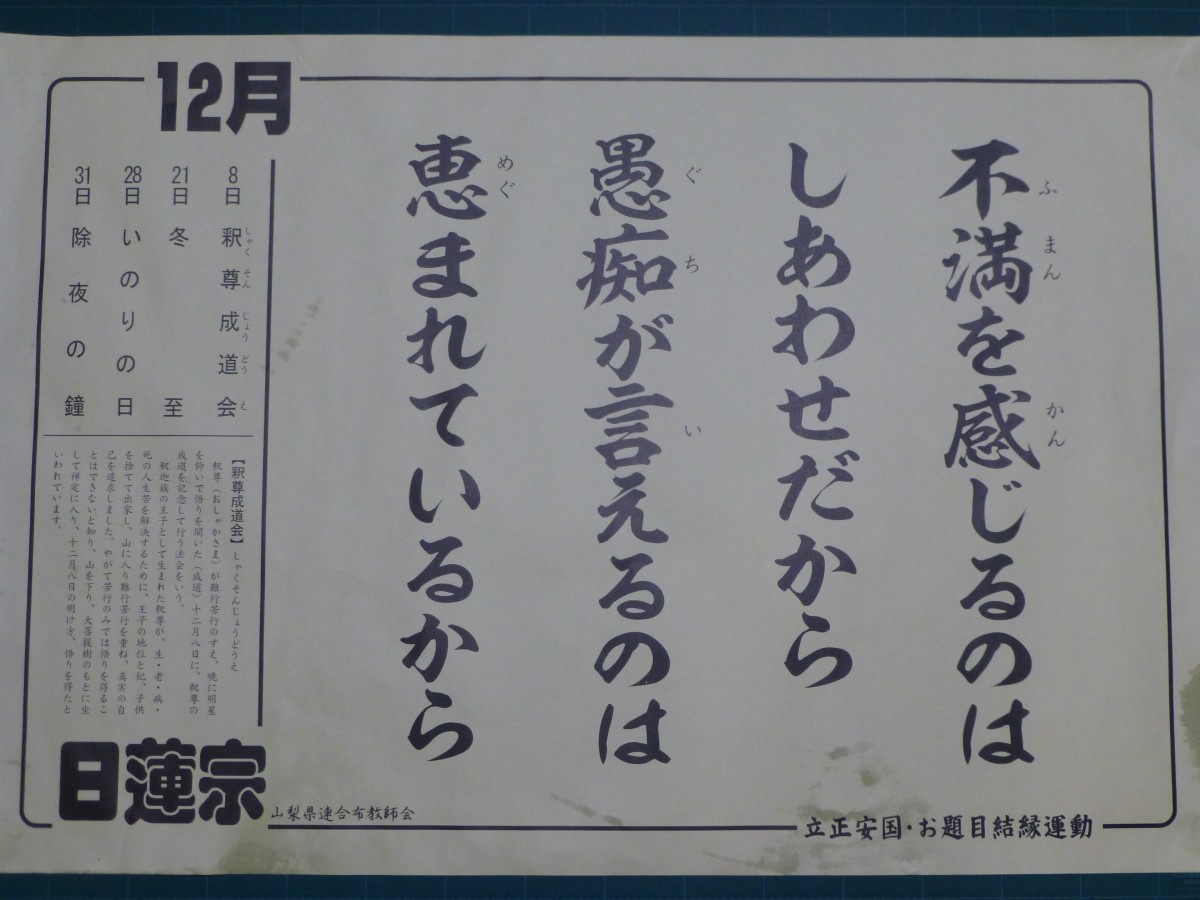 不満を感じるのは
しあわせだから
愚痴が言えるのは
恵まれているから
12月
8日 釈尊成道会
21日 冬至
28日 いのりの日
31日 除夜の鐘
【釈尊成道会】しゃくそんじょうどうえ
釈尊（おしゃかさま）が難行苦行のすえ、暁に明星
を仰いで悟りを開いた（成道）十二月八日に、釈尊の
成道を記念して行う法会をいう。
釈迦族の王子として生まれた釈尊が、生・老・病・
死の人生苦を解決するために、王子の地位と妃、子供
を捨てて出家し、山に入り難行苦行を重ね、真実の自
己を追求しました。やがて苦行のみでは悟りを得るこ
とはできないと知り、山を下り、大菩提樹のもとに坐
して禅定に入り、十二月八日の明け方、悟りを得たと
いわれています。
日蓮宗
山梨県連合布教師会
立正安国・お題目結縁運動